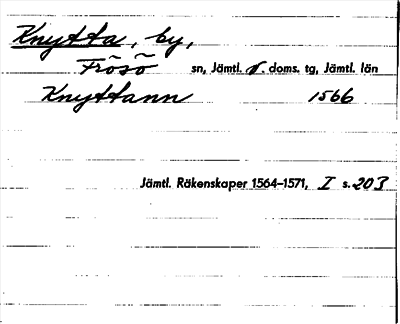 Knytta, by,
Frösö sn, Jämtl. v. doms. tg, Jämtl. län
Knyttann 1566
Jämtl. Räkenskaper 1564-1571, I s. 203